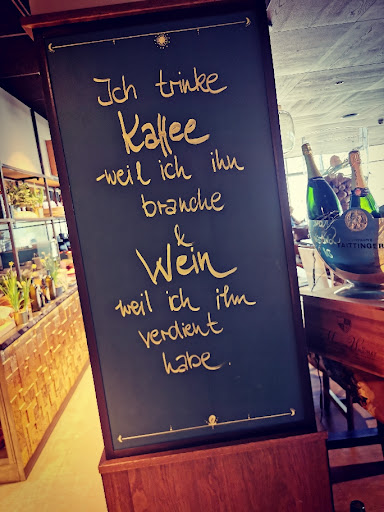 Ich trinke
Kaffee
-weil ich ihn
brauche
&
Wein
weil ich ihn
verdient
habe.
TAITTINGER